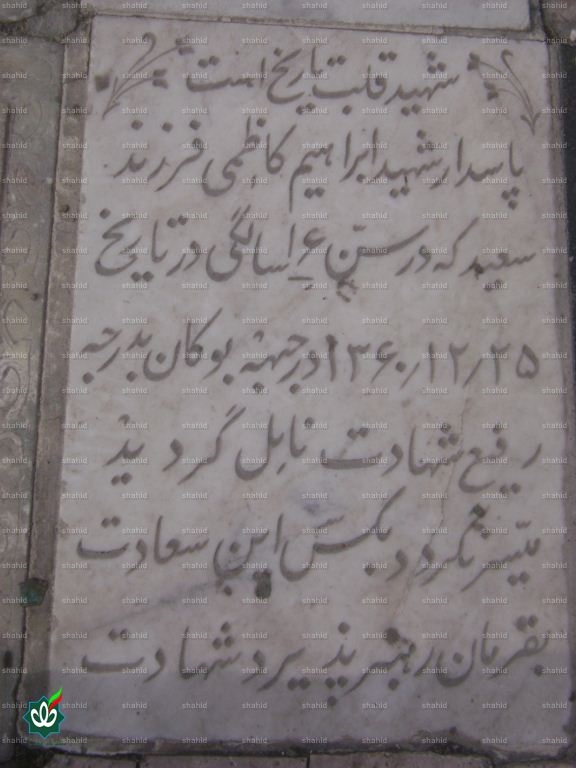 شهید قلب تاریخ است
پاسدار شهید ابراهیم کاظمی فرزند
سعید که در سنّ ۱۶ سالگی در تاریخ
۱۳۶۰/۱۲/۲۵ در جبهه بوکان بدرجه
رفیع شهادت نایل گردید
میّسر نگردد بکس این سعادت
بفرمان رهبر پذیرد شهادت